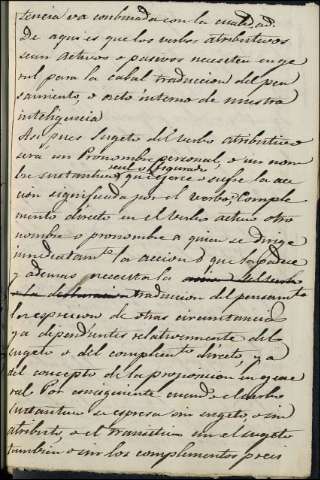 tencia va combinada con la cualidad.
De aqui es que los verbos atributivos
sean activos o pasivos necesiten en ge
ral para la cabal traduccion del pen
samiento, o acto interno de nuestra
inteligencia
Asi pues sugeto del verbo atributivo
será un Pronombre personal, o un nom
real o figurado
bre sustantivo que egerce o sufre la ac
cion significada por el verbo; Comple
mento directo en el verbo activo otro
nombre o pronombre a quien se dirige
inmediatamte la accion o que la padece
y ademas necesita la
o la traduccion del pensamto
la espresion de otras circunstancias
ya dependientes relativamente del
sugeto o del complemto directo, ya
del concepto de la proposicion en gene
ral Por consiguiente cuando el verbo
sustantivo se espresa sin sugeto, o sin
atributo, o el transitivo sin el sugeto
tambien o sin los complementos preci